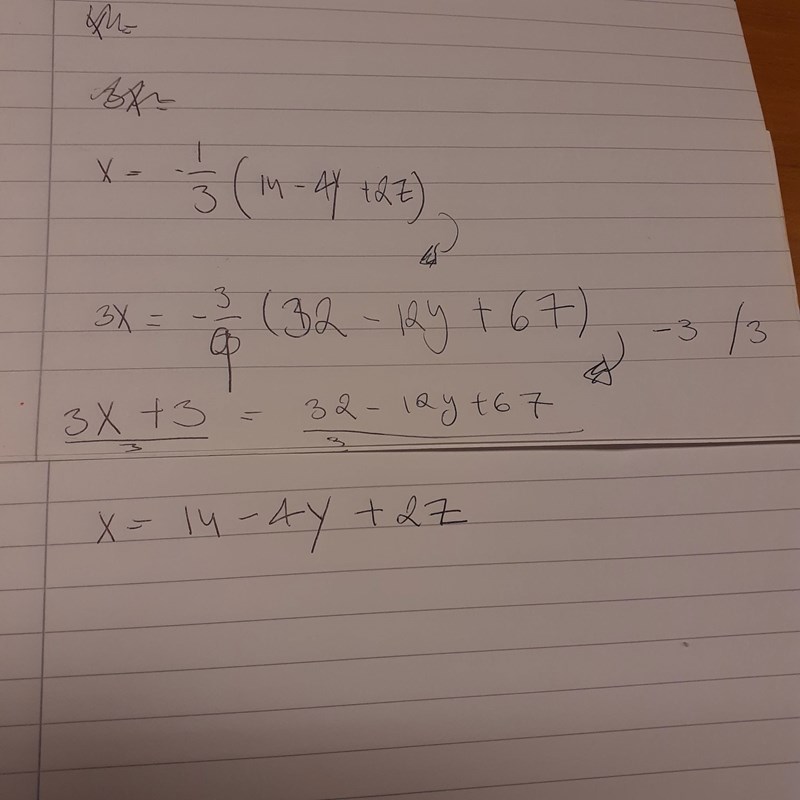 x = -1/3 (14 - 4y + 2z)
3x = -3/9 (32 - 12y + 67) -3 /3
3x + 3 / 3 = 32 - 12y + 67 / 3
x = 14 - 4y + 2z